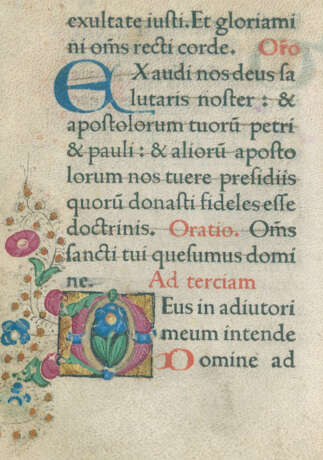 exultate iusti. Et gloriami
ni om̄s recti corde. Oro
EXaudi nos deus sa
lutaris noster : &
apostolorum tuorū petri
& pauli : & aliorū aposto
lorum nos tuere presidiis
quorū donasti fideles esse
doctrinis. Oratio. Om̄s
sancti tui quesumus domi
ne. Ad terciam
DEus in adiutori
meum intende
Domine ad